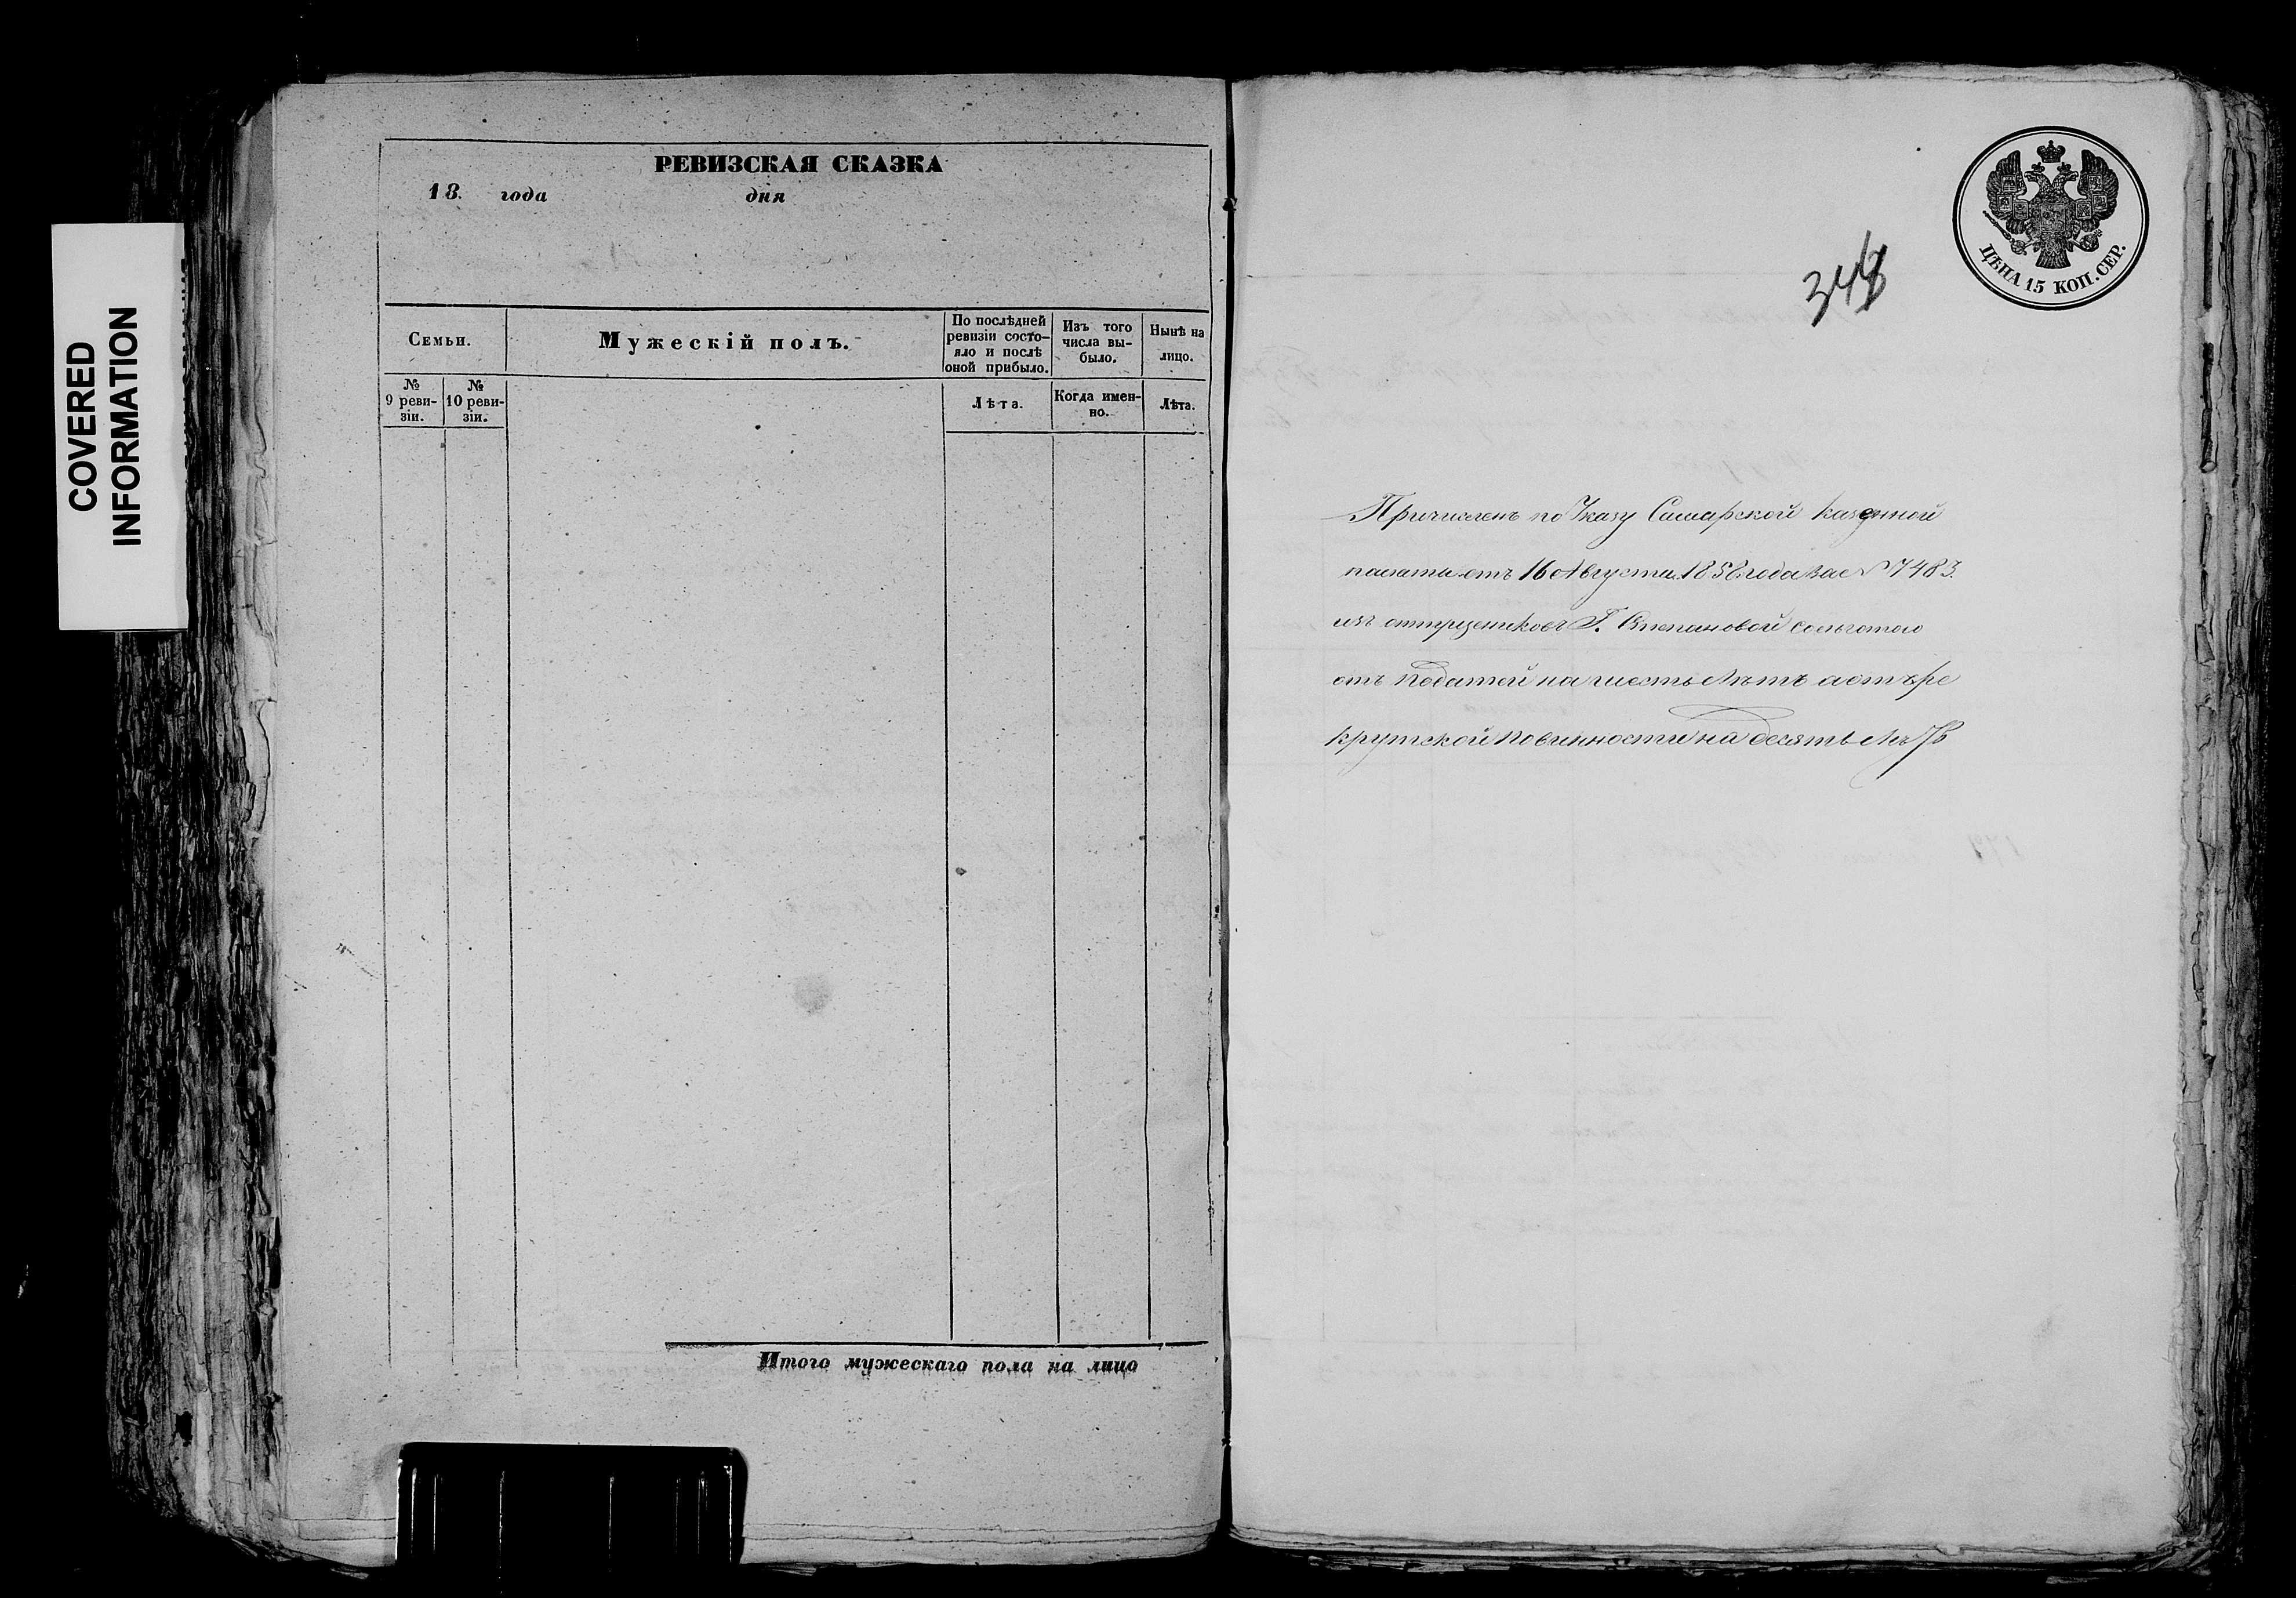 COVERED
INFORMATION
РЕВИЗСКАЯ СКАЗКА
18 . года дня
Семьи.
Мужескій полъ.
По послѣдней
ревизіи состо-
яло и послѣ
оной прибыло.
Изъ того
числа вы-
было.
Нынѣ на
лицо.
№
9 реви-
зіи.
№
10 реви-
зіи.
Лѣта.
Когда имен-
но.
Лѣта.
Итого мужескаго пола на лицо
ЦѢНА 15 КОП. СЕР.
Причисленъ по Указу Самарской Казенной
палаты отъ 16 Августа 1858 года за № 7483.
изъ отпущениковъ Г. Степановой сольготою
отъ податей на шесть лѣтъ а отъ ре
крутской повинности на десять лѣтъ